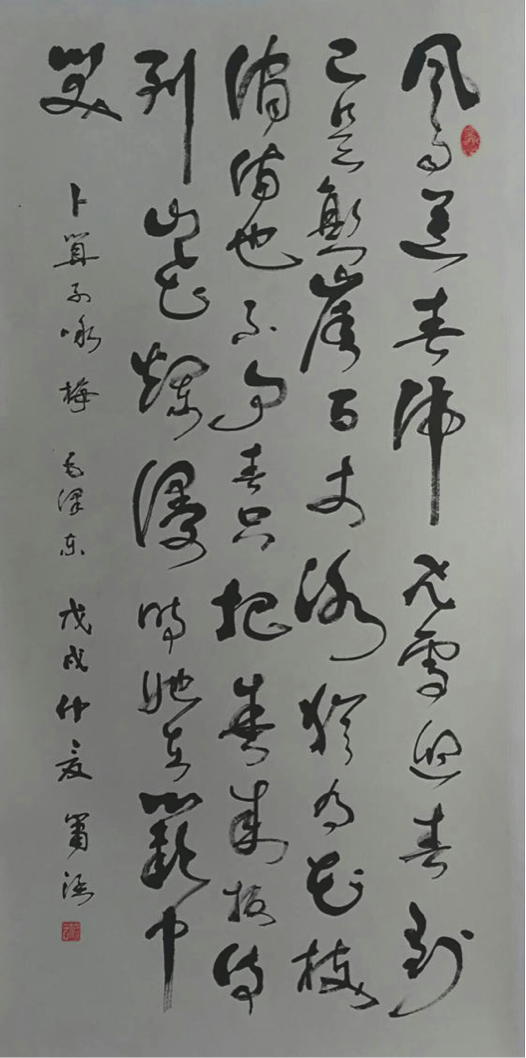 风雨送春归飞雪迎春到
已是悬崖百丈冰犹有花枝
俏俏也不争春只把春来报待
到山花烂漫时她在丛中
笑 卜算子咏梅 毛泽东 戊戌仲夏